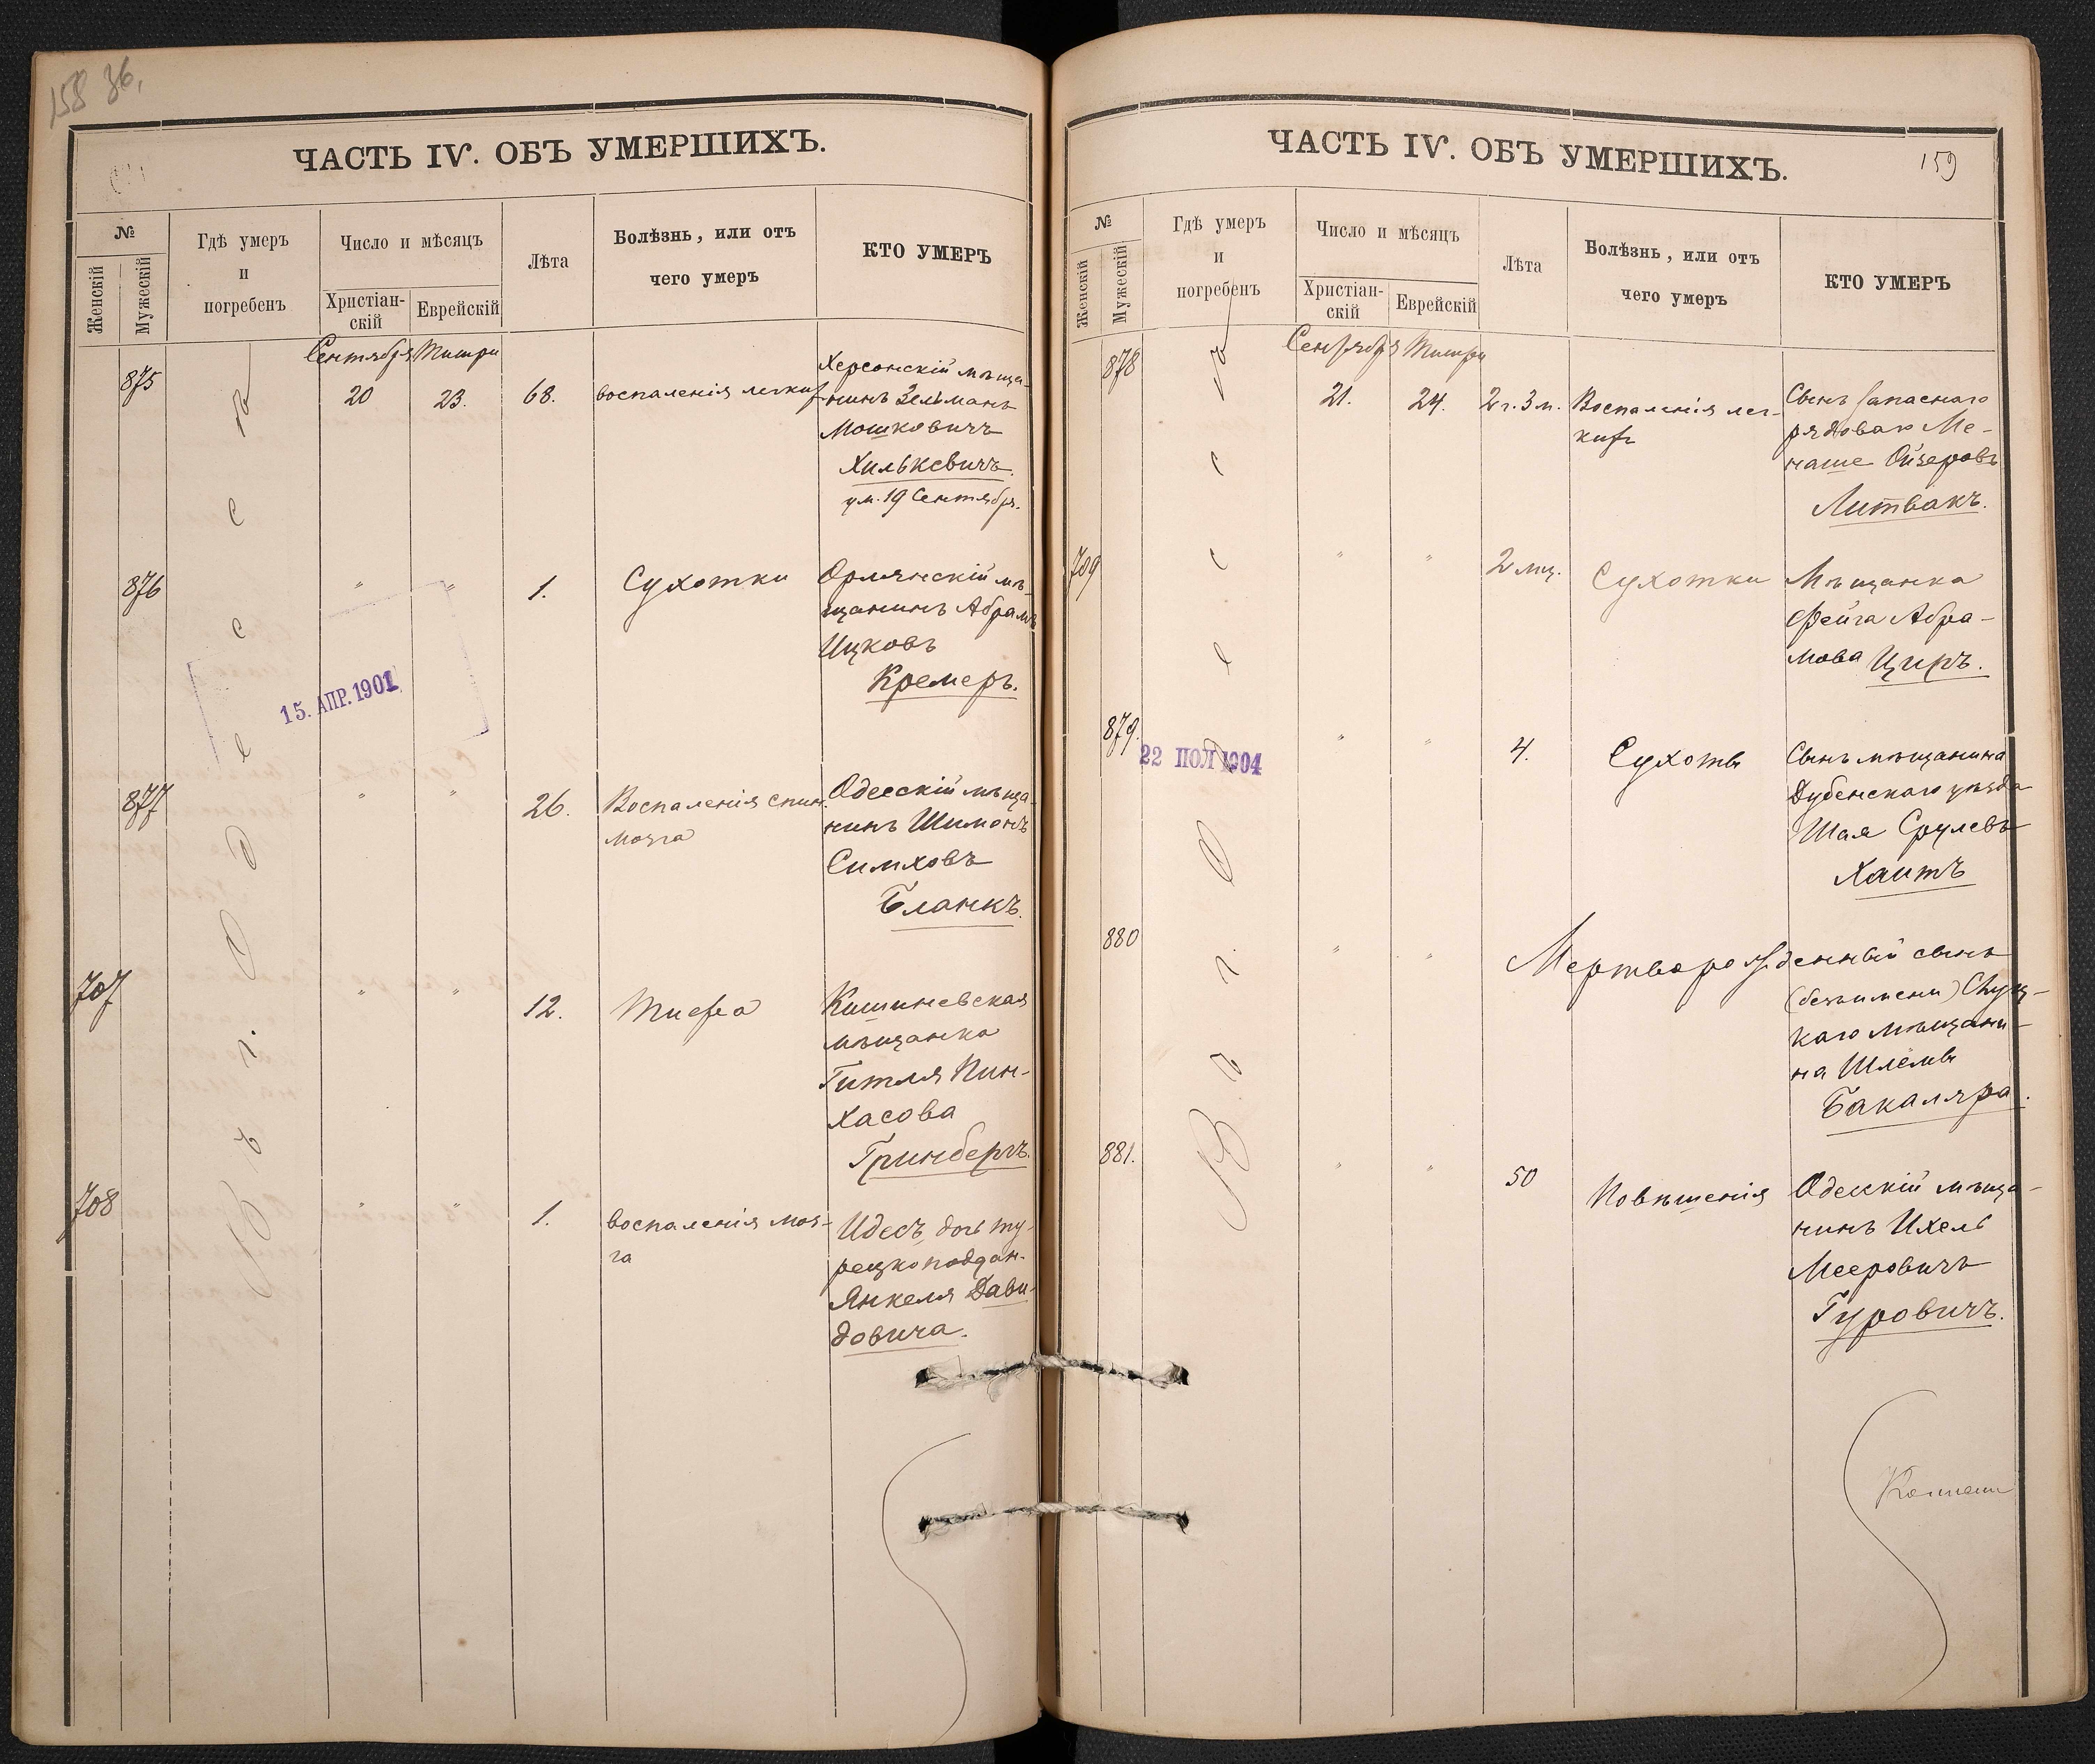 158 36,
ЧАСТЬ IV. ОБЪ УМЕРШИХЪ.
№
Женскій
Мужескій
Гдѣ умеръ
и
погребенъ
Число и мѣсяцъ
Христіан-
скій
Еврейскій
Лѣта
Болѣзнь, или отъ
чего умеръ
КТО УМЕРЪ
Въ г. Одессѣ
Сентября Тишри
875
20
23.
68.
воспаленія легкихъ
Херсонскій мѣща-
нинъ Зельманъ
Мошковичъ
Хилькевичъ.
ум. 19 Сентября.
876
"
"
1.
Сухотки
Орлянскій мѣ-
щанинъ Абрамъ
Ицковъ
Кремеръ.
15. АПР. 1901
877
"
"
26.
Воспаленія спин.
мозга
Одесскій мѣща-
нинъ Шимонъ
Симховъ
Бланкъ.
707
"
"
12.
Тифа
Кишиневская
мѣщанка
Гитля Пин-
хасова
Гринбергъ.
708
"
"
1.
воспаленія моз-
га
Идесъ, дочь ту-
рецкоподдан.
Янкеля Дави-
довича.
ЧАСТЬ IV. ОБЪ УМЕРШИХЪ.
159
№
Женскій
Мужескій
Гдѣ умеръ
и
погребенъ
Число и мѣсяцъ
Христіан-
скій
Еврейскій
Лѣта
Болѣзнь, или отъ
чего умеръ
КТО УМЕРЪ
В г. Одессѣ
Сентября Тишри
878
21.
24.
2 г. 3 м.
Воспаленія лег-
кихъ
Сынъ запаснаго
рядоваго Ме-
наше Ойзеровъ
Литвакъ.
709
"
"
2 мц.
Сухотки
Мѣщанка
Фейга Абра-
мова Циръ.
879.
"
"
4.
Сухоты
Сынъ мѣщанина
Дубенскаго уѣзда
Шая Срулевъ
Хаитъ
22 ПОЛ 1904
880
"
"
Мертворожденный сынъ
(безъ имени) Слуц-
каго мѣщани-
на Шлемы
Бакаляра.
881.
"
"
50
Повѣшенія
Одесскій мѣща-
нинъ Ихель
Мееровичъ
Гуровичъ.